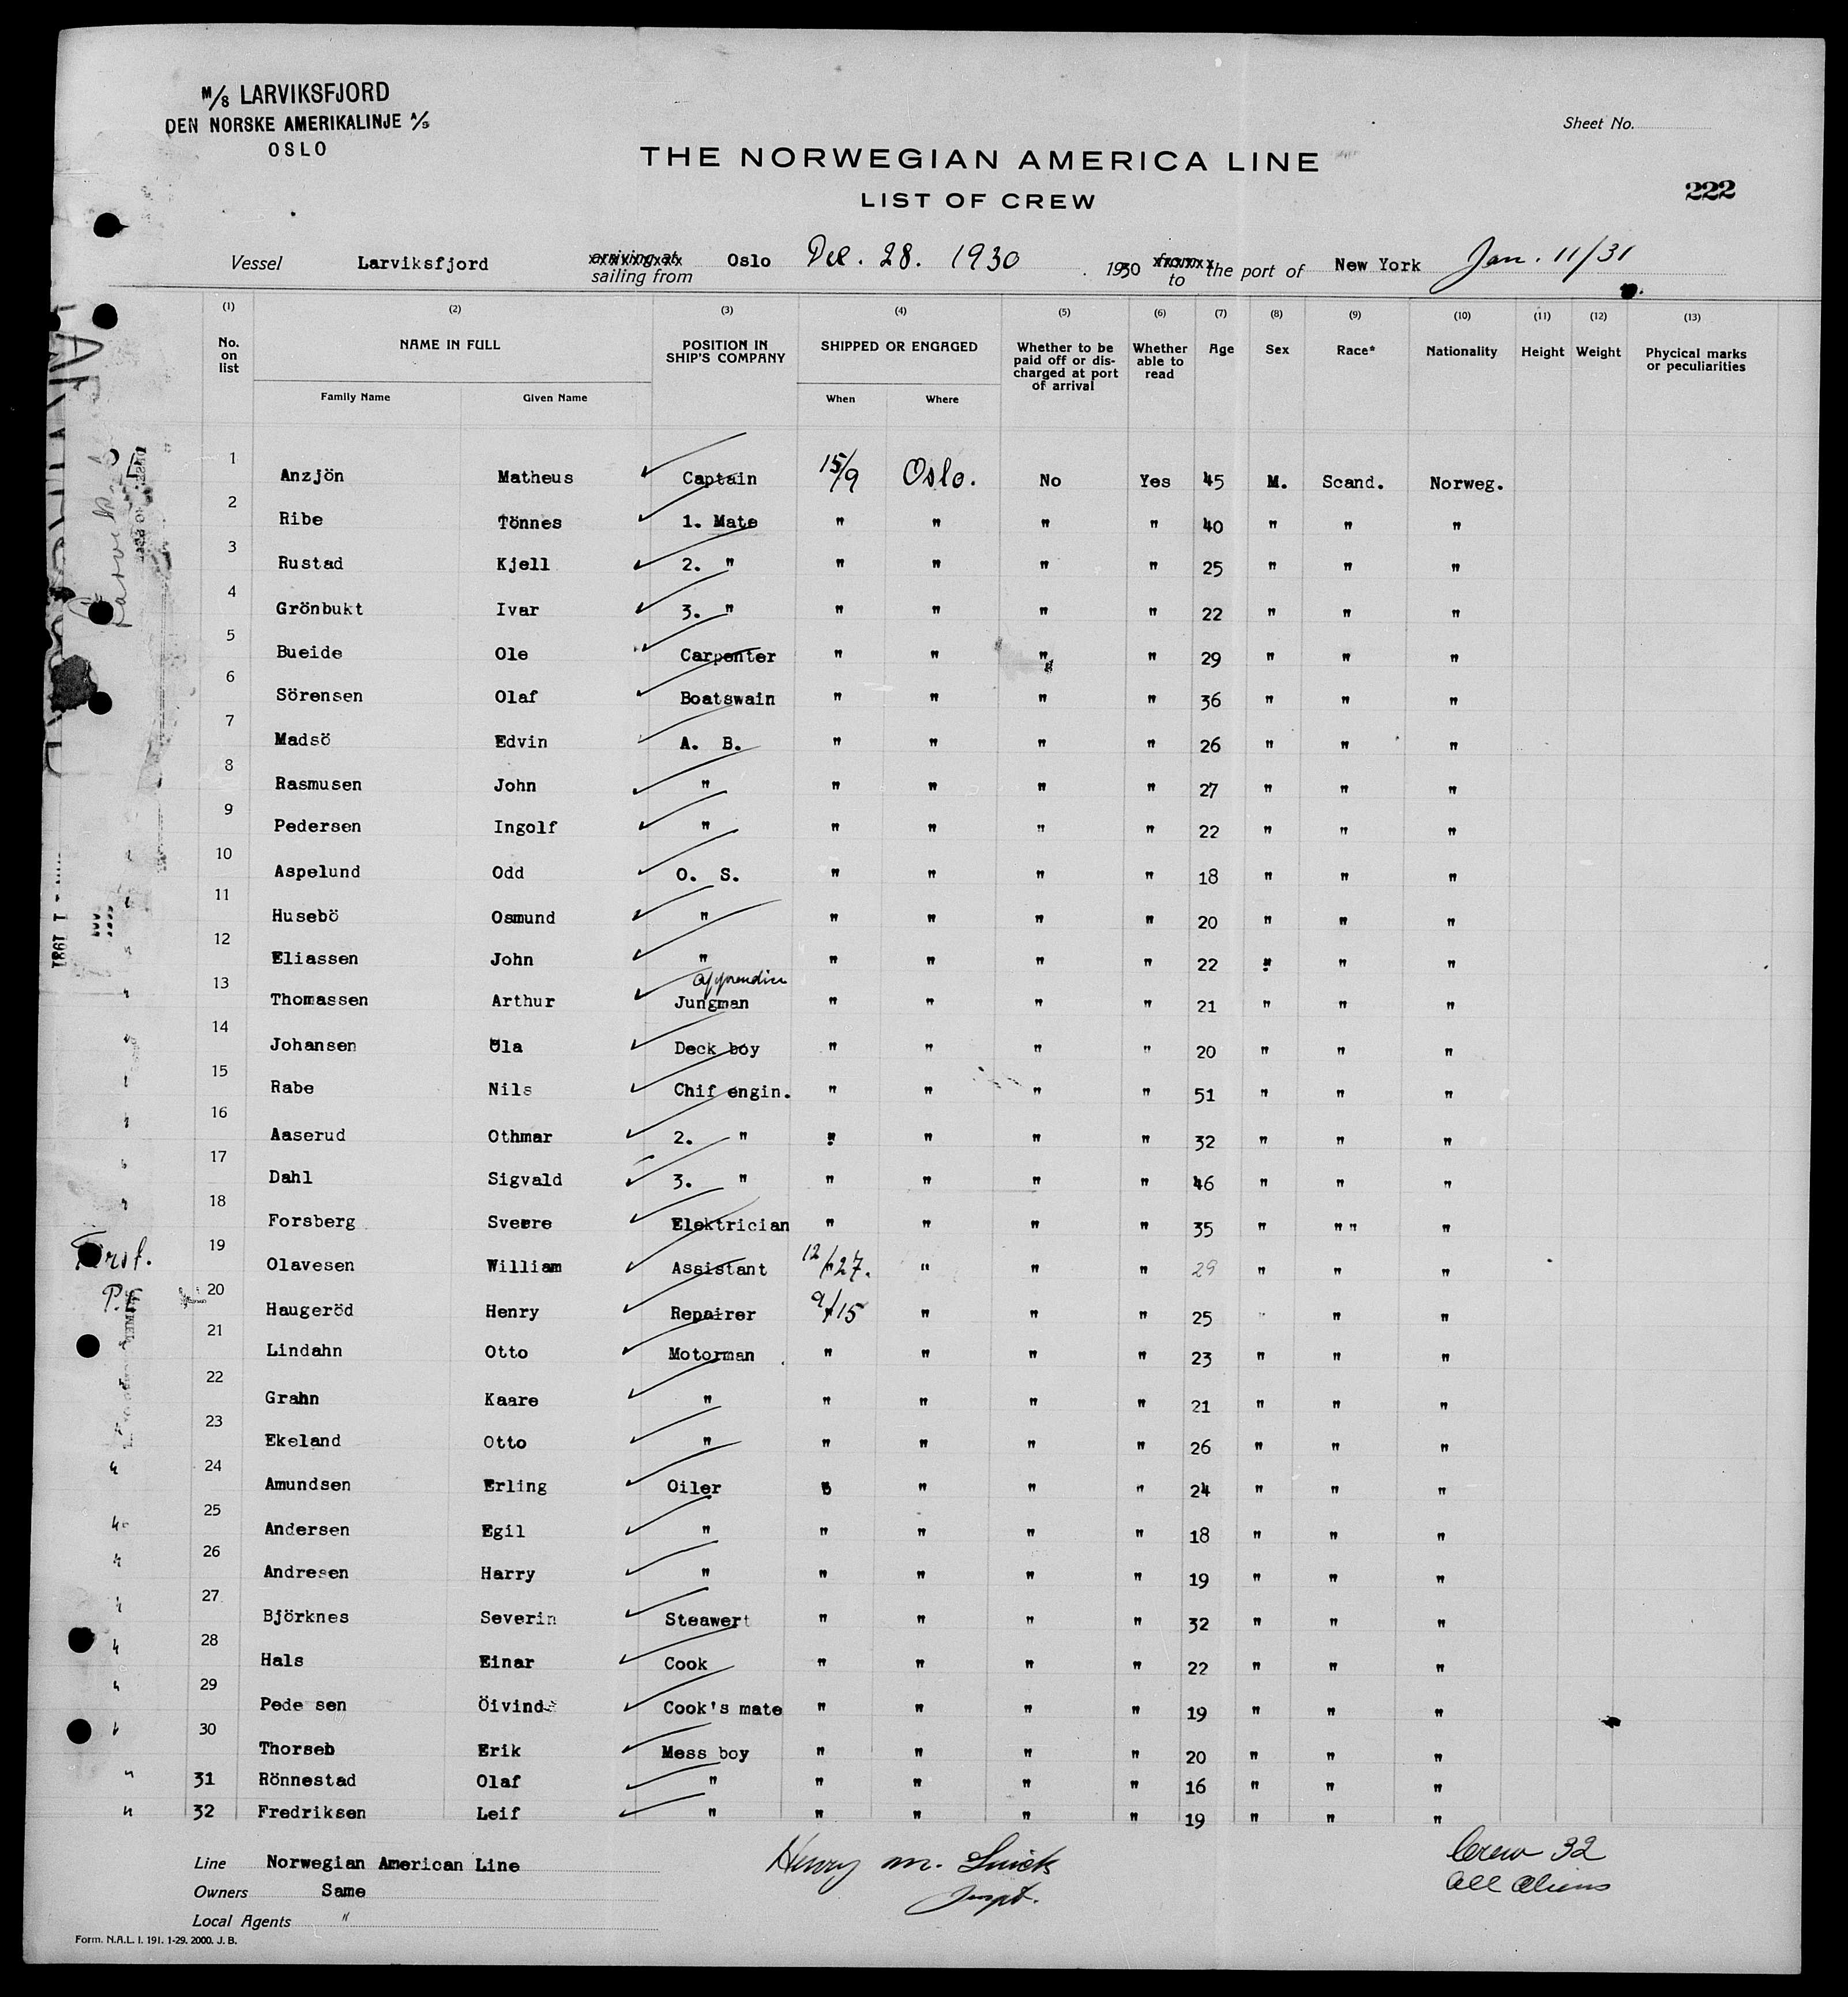 M/S LARVIKSFJORD
DEN NORSKE AMERIKALINJE A/S
OSLO
Sheet No.
THE NORWEGIAN AMERICA LINE
LIST OF CREW
222
Vessel Larviksfjord arriving at sailing from Oslo Dec. 28. 1930 1930 from to the port of New York Jan. 11/31
(1) (2) (3) (4) (5) (6) (7) (8) (9) (10) (11) (12) (13)
No. on list NAME IN FULL POSITION IN SHIP'S COMPANY SHIPPED OR ENGAGED Whether to be paid off or discharged at port of arrival Whether able to read Age Sex Race* Nationality Height Weight Phycical marks or peculiarities
Family Name Given Name When Where
1 Anzjön Matheus Captain 15/9 Oslo. No Yes 45 M. Scand. Norweg.
2 Ribe Tönnes 1. Mate " " " " 40 " " "
3 Rustad Kjell 2. " " " " " 25 " " "
4 Grönbukt Ivar 3. " " " " " 22 " " "
5 Bueide Ole Carpenter " " " " 29 " " "
6 Sörensen Olaf Boatswain " " " " 36 " " "
7 Madsö Edvin A. B. " " " " 26 " " "
8 Rasmusen John " " " " " 27 " " "
9 Pedersen Ingolf " " " " " 22 " " "
10 Aspelund Odd O. S. " " " " 18 " " "
11 Husebö Osmund " " " " " 20 " " "
12 Eliassen John " " " " " 22 " " "
13 Thomassen Arthur Jungman " " " " 21 " " "
14 Johansen Ola Deck boy " " " " 20 " " "
15 Rabe Nils Chif engin. " " " " 51 " " "
16 Aaserud Othmar 2. " " " " " 32 " " "
17 Dahl Sigvald 3. " " " " " 46 " " "
18 Forsberg Sverre Elektrician " " " " 35 " " " "
19 Olavesen William Assistant 12/27. " " " 29 " " "
20 Haugeröd Henry Repairer 9/15 " " " 25 " " "
21 Lindahn Otto Motorman " " " " 23 " " "
22 Grahn Kaare " " " " " 21 " " "
23 Ekeland Otto " " " " " 26 " " "
24 Amundsen Erling Oiler " " " " 24 " " "
25 Andersen Egil " " " " " 18 " " "
26 Andresen Harry " " " " " 19 " " "
27 Björknes Severin Steawert " " " " 32 " " "
28 Hals Einar Cook " " " " 22 " " "
29 Pede sen Öivind Cook's mate " " " " 19 " " "
30 Thorseb Erik Mess boy " " " " 20 " " "
31 Rönnestad Olaf " " " " " 16 " " "
32 Fredriksen Leif " " " " " 19 " " "
Line Norwegian American Line
Owners Same
Local Agents "
Henry M.
Inspt.
Crew 32
All Aliens
Form. N.A.L. I. 191. 1-29. 2000. J. B.